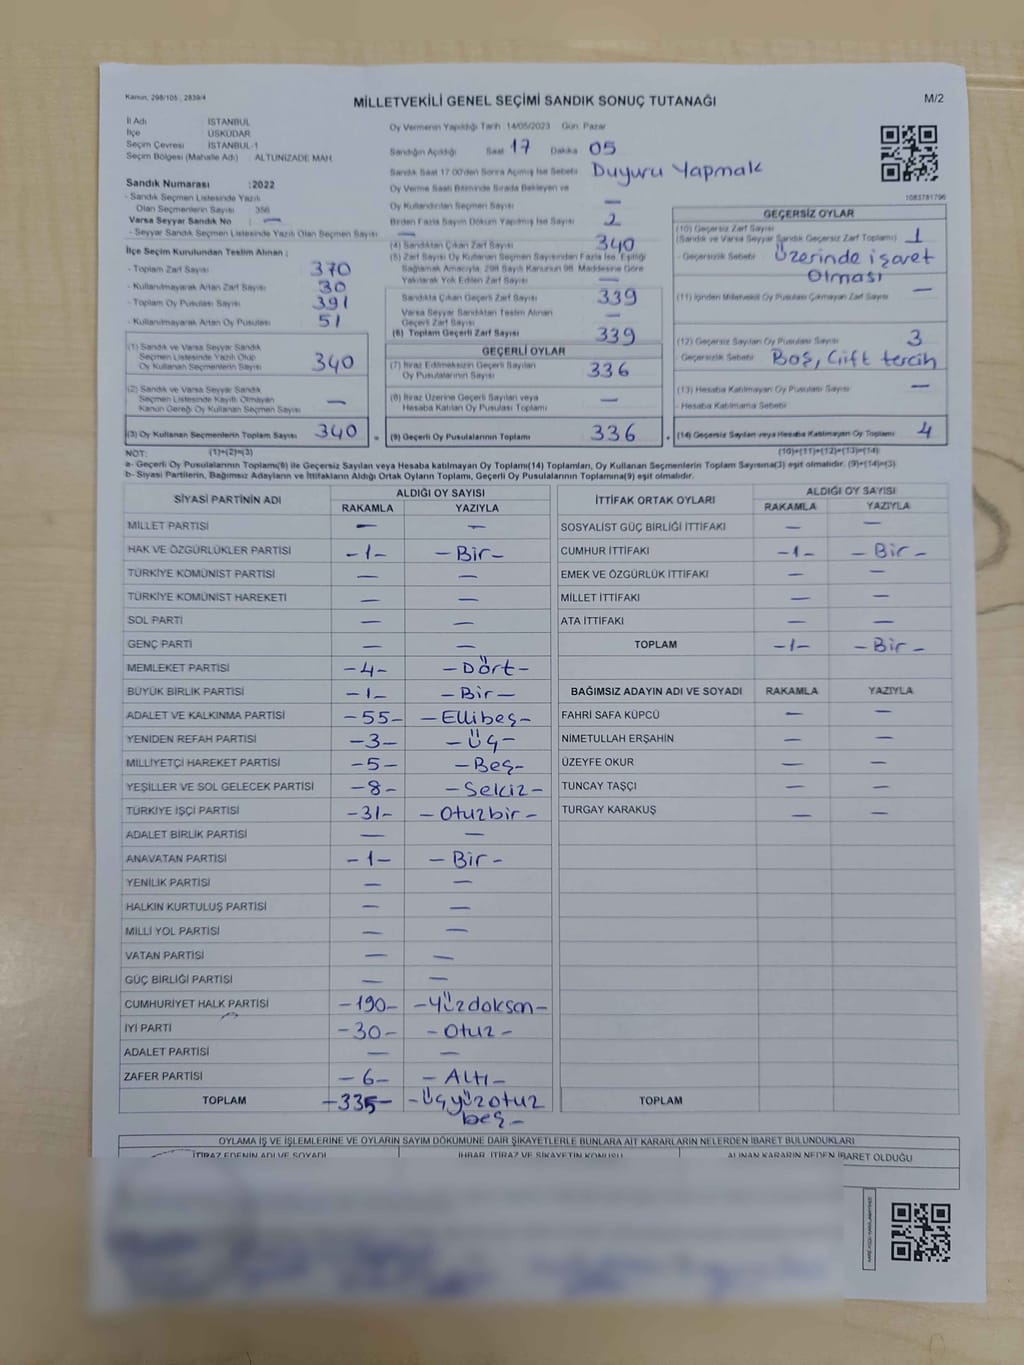 Kanun, 298/105 , 2839/4
MİLLETVEKİLİ GENEL SEÇİMİ SANDIK SONUÇ TUTANAĞI
M/2
İl Adı : İSTANBUL
İlçe : ÜSKÜDAR
Seçim Çevresi : İSTANBUL-1
Seçim Bölgesi (Mahalle Adı) : ALTUNİZADE MAH.
Oy Vermenin Yapıldığı Tarih :14/05/2023 Gün: Pazar
Sandığın Açıldığı Saat 17 Dakika 05
Sandık Saat 17.00'den Sonra Açılmış İse Sebebi Duyuru Yapmak
Oy Verme Saati Bitiminde Sırada Bekleyen ve
Oy Kullandırılan Seçmen Sayısı —
Birden Fazla Sayım Döküm Yapılmış İse Sayısı 2
1083781796
Sandık Numarası :2022
- Sandık Seçmen Listesinde Yazılı
Olan Seçmenlerin Sayısı : 356
Varsa Seyyar Sandık No : —
- Seyyar Sandık Seçmen Listesinde Yazılı Olan Seçmen Sayısı : —
İlçe Seçim Kurulundan Teslim Alınan ;
- Toplam Zarf Sayısı 370
- Kullanılmayarak Artan Zarf Sayısı 30
- Toplam Oy Pusulası Sayısı 391
- Kullanılmayarak Artan Oy Pusulası 51
(1) Sandık ve Varsa Seyyar Sandık
Seçmen Listesinde Yazılı Olup
Oy Kullanan Seçmenlerin Sayısı 340
(2) Sandık ve Varsa Seyyar Sandık
Seçmen Listesinde Kayıtlı Olmayan
Kanun Gereği Oy Kullanan Seçmen Sayısı —
(3) Oy Kullanan Seçmenlerin Toplam Sayısı 340
(4) Sandıktan Çıkan Zarf Sayısı 340
(5) Zarf Sayısı Oy Kullanan Seçmen Sayısından Fazla İse, Eşitliği
Sağlamak Amacıyla, 298 Sayılı Kanunun 98. Maddesine Göre
Yakılarak Yok Edilen Zarf Sayısı —
Sandıkta Çıkan Geçerli Zarf Sayısı 339
Varsa Seyyar Sandıktan Teslim Alınan
Geçerli Zarf Sayısı —
(6) Toplam Geçerli Zarf Sayısı 339
GEÇERLİ OYLAR
(7) İtiraz Edilmeksizin Geçerli Sayılan
Oy Pusulalarının Sayısı 336
(8) İtiraz Üzerine Geçerli Sayılan veya
Hesaba Katılan Oy Pusulası Toplamı —
(9) Geçerli Oy Pusulalarının Toplamı 336
GEÇERSİZ OYLAR
(10) Geçersiz Zarf Sayısı
(Sandık ve Varsa Seyyar Sandık Geçersiz Zarf Toplamı) 1
- Geçersizlik Sebebi : Üzerinde işaret
Olması
(11) İçinden Milletvekili Oy Pusulası Çıkmayan Zarf Sayısı —
(12) Geçersiz Sayılan Oy Pusulası Sayısı 3
- Geçersizlik Sebebi : Boş, Çift tercih
(13) Hesaba Katılmayan Oy Pusulası Sayısı —
- Hesaba Katılmama Sebebi
(14) Geçersiz Sayılan veya Hesaba Katılmayan Oy Toplamı 4
NOT: (1)+(2)=(3) (10)+(11)+(12)+(13)=(14)
a- Geçerli Oy Pusulalarının Toplamı(9) ile Geçersiz Sayılan veya Hesaba katılmayan Oy Toplamı(14) Toplamları, Oy Kullanan Seçmenlerin Toplam Sayısına(3) eşit olmalıdır. (9)+(14)=(3)
b- Siyasi Partilerin, Bağımsız Adayların ve İttifakların Aldığı Ortak Oyların Toplamı, Geçerli Oy Pusulalarının Toplamına(9) eşit olmalıdır.
SİYASİ PARTİNİN ADI ALDIĞI OY SAYISI
RAKAMLA YAZIYLA
MİLLET PARTİSİ — —
HAK VE ÖZGÜRLÜKLER PARTİSİ -1- -Bir-
TÜRKİYE KOMÜNİST PARTİSİ — —
TÜRKİYE KOMÜNİST HAREKETİ — —
SOL PARTİ — —
GENÇ PARTİ — —
MEMLEKET PARTİSİ -4- -Dört-
BÜYÜK BİRLİK PARTİSİ -1- -Bir-
ADALET VE KALKINMA PARTİSİ -55- -Ellibeş-
YENİDEN REFAH PARTİSİ -3- -Üç-
MİLLİYETÇİ HAREKET PARTİSİ -5- -Beş-
YEŞİLLER VE SOL GELECEK PARTİSİ -8- -Sekiz-
TÜRKİYE İŞÇİ PARTİSİ -31- -Otuzbir-
ADALET BİRLİK PARTİSİ — —
ANAVATAN PARTİSİ -1- -Bir-
YENİLİK PARTİSİ — —
HALKIN KURTULUŞ PARTİSİ — —
MİLLİ YOL PARTİSİ — —
VATAN PARTİSİ — —
GÜÇ BİRLİĞİ PARTİSİ — —
CUMHURİYET HALK PARTİSİ -190- -Yüzdoksan-
İYİ PARTİ -30- -Otuz-
ADALET PARTİSİ — —
ZAFER PARTİSİ -6- -Altı-
TOPLAM -335- -Üçyüzotuz
beş-
İTTİFAK ORTAK OYLARI ALDIĞI OY SAYISI
RAKAMLA YAZIYLA
SOSYALİST GÜÇ BİRLİĞİ İTTİFAKI — —
CUMHUR İTTİFAKI -1- -Bir-
EMEK VE ÖZGÜRLÜK İTTİFAKI — —
MİLLET İTTİFAKI — —
ATA İTTİFAKI — —
TOPLAM -1- -Bir-
BAĞIMSIZ ADAYIN ADI VE SOYADI RAKAMLA YAZIYLA
FAHRİ SAFA KÜPCÜ — —
NİMETULLAH ERŞAHİN — —
ÜZEYFE OKUR — —
TUNCAY TAŞÇI — —
TURGAY KARAKUŞ — —
TOPLAM
OYLAMA İŞ VE İŞLEMLERİNE VE OYLARIN SAYIM DÖKÜMÜNE DAİR ŞİKAYETLERLE BUNLARA AİT KARARLARIN NELERDEN İBARET BULUNDUKLARI
İTİRAZ EDENİN ADI VE SOYADI İHBAR, İTİRAZ VE ŞİKAYETİN KONUSU ALINAN KARARIN NEDEN İBARET OLDUĞU